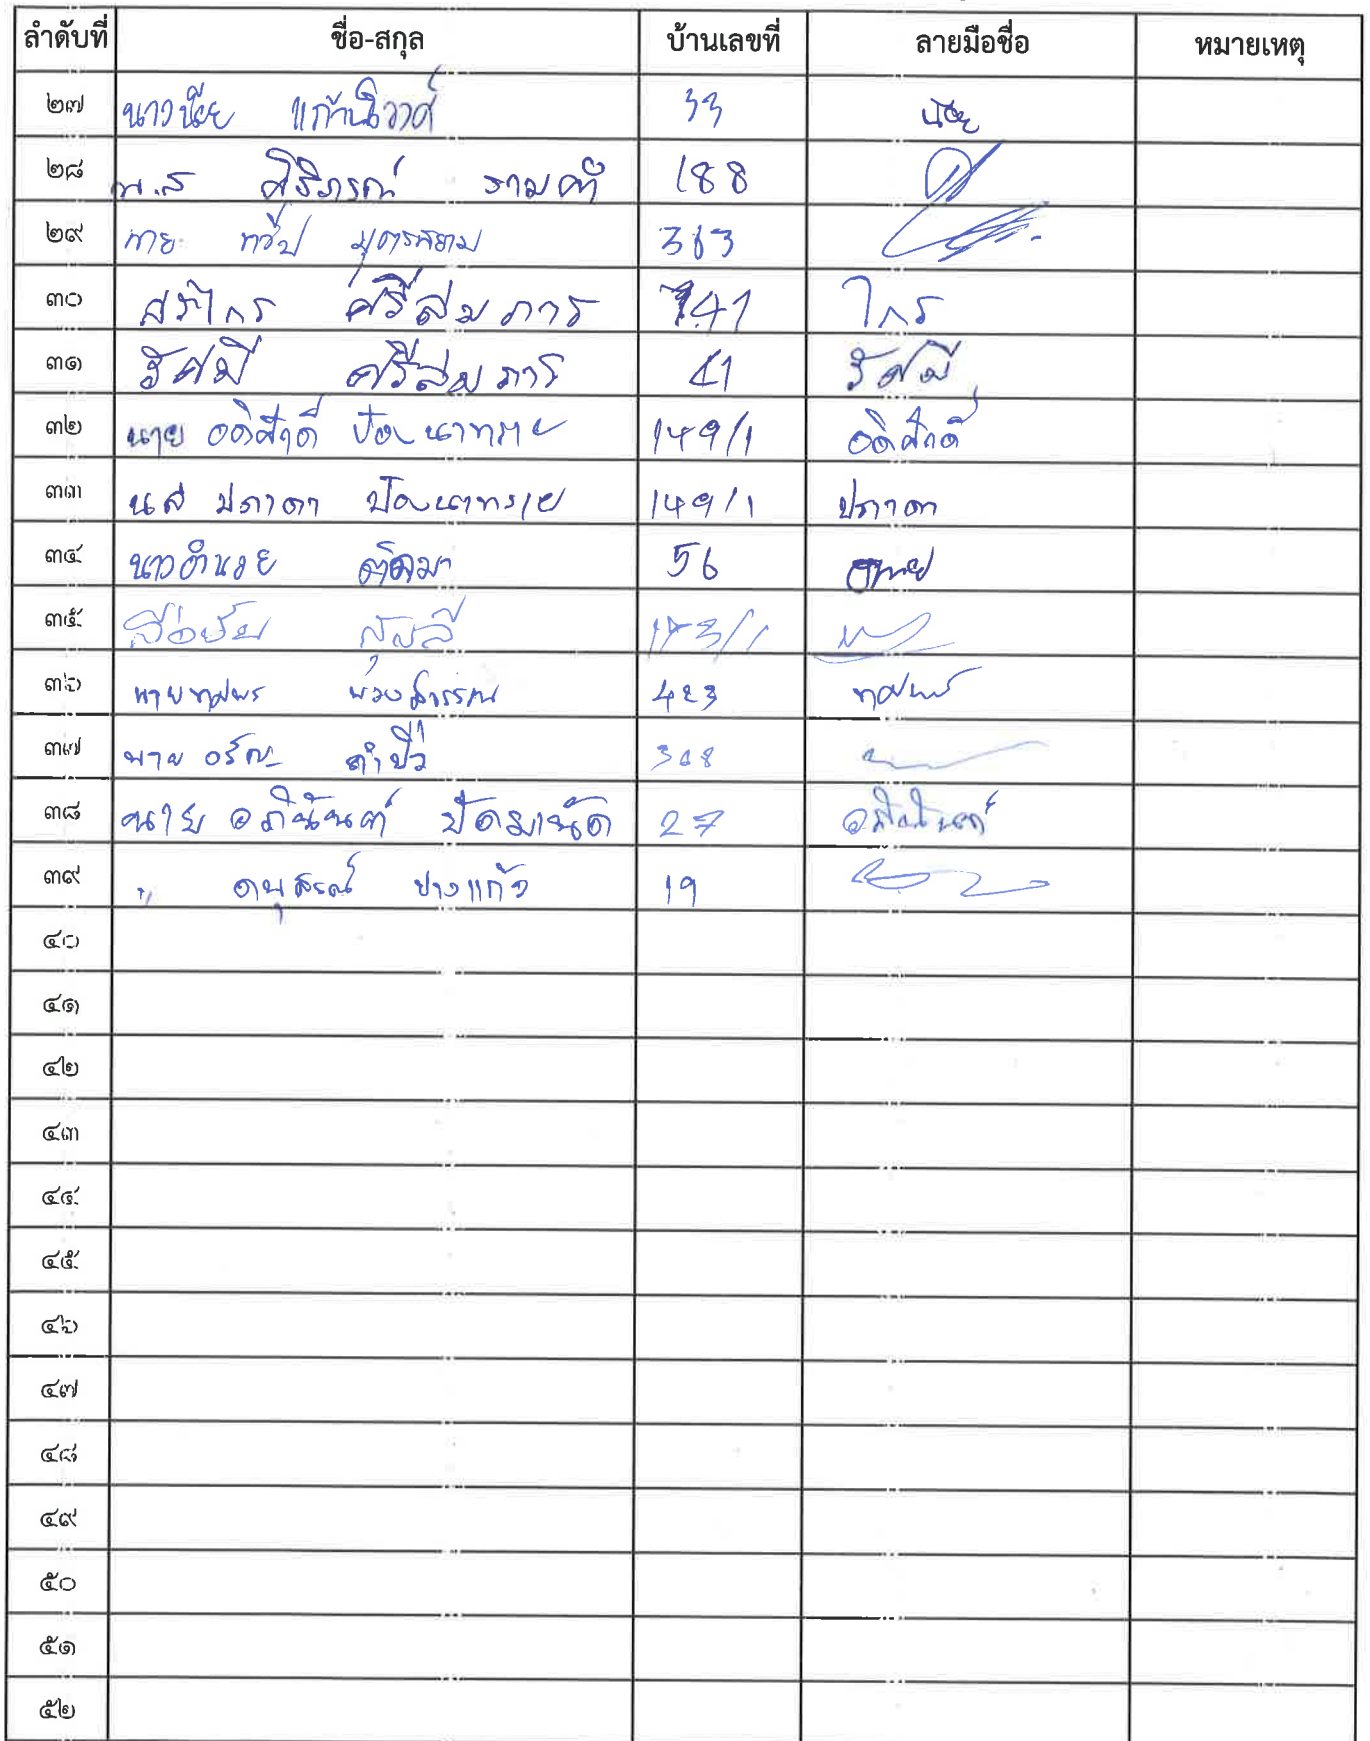 ลำดับที่ ชื่อ-สกุล บ้านเลขที่ ลายมือชื่อ หมายเหตุ
๒๗ นางน้อย 33 น้อย
๒๘ น.ส ศิริภรณ์ รามคำ 188
๒๙ นาย ทวีป 363
๓๐ ศรีไกร ศรีสมภาร 141 ไกร
๓๑ รัศมี ศรีสมภาร 41 รัศมี
๓๒ นาย อดิศักดิ์ ป้องนาทราย 149/1 อดิศักดิ์
๓๓ นส ปภาดา ป้องนาทราย 149/1 ปภาดา
๓๔ นางอำนวย 56
๓๕ 173/1
๓๖ นายทศพร 423 ทศพร
๓๗ นาย 308
๓๘ นาย อภินันต์ ปัดมานัด 27 อภินันต์
๓๙ " อนุสรณ์ ปางแก้ว 19
๔๐
๔๑
๔๒
๔๓
๔๔
๔๕
๔๖
๔๗
๔๘
๔๙
๕๐
๕๑
๕๒